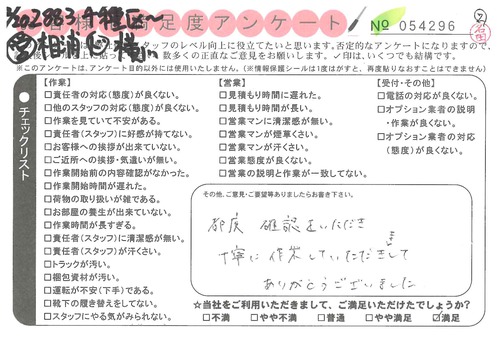 1/20 2883 千種区〜
満足度アンケート
№ 054296
石田
スタッフのレベル向上に役立てたいと思います。否定的なアンケートになりますので、
数多くの正直なご意見をお願いします。✓印は、いくつでも結構です。
※このアンケートは、アンケート目的以外には使用いたしません。(※情報保護シールは1度はがすと、再度貼りなおすことはできません)
チェックリスト
【作業】
□責任者の対応(態度)が良くない。
□他のスタッフの対応(態度)が良くない。
□作業を見ていて不安がある。
□責任者(スタッフ)に好感が持てない。
□お客様への挨拶が出来ていない。
□ご近所への挨拶・気遣いが無い。
□作業開始前の内容確認がなかった。
□作業開始時間が遅れた。
□荷物の取り扱いが雑である。
□お部屋の養生が出来ていない。
□作業時間が長すぎる。
□責任者(スタッフ)に清潔感が無い。
□責任者(スタッフ)が汗くさい。
□トラックが汚い。
□梱包資材が汚い。
□運転が不安(下手)である。
□靴下の履き替えをしてない。
□スタッフにやる気がみられない。
【営業】
□見積もり時間に遅れた。
□見積もり時間が長い。
□営業マンに清潔感が無い。
□営業マンが煙草くさい。
□営業マンが汗くさい。
□営業態度が良くない。
□営業の説明と作業が一致してない。
【受付・その他】
□電話の対応が良くない。
□オプション業者の説明
・作業が良くない。
□オプション業者の対応
(態度)が良くない。
その他、ご意見・ご要望等ありましたらお書き下さい。
都度 確認をいただき
丁寧に作業していただきまして
ありがとうございました
☆当社をご利用いただきまして、ご満足いただけたでしょうか?
□不満 □やや不満 □普通 □やや満足 ☑満足